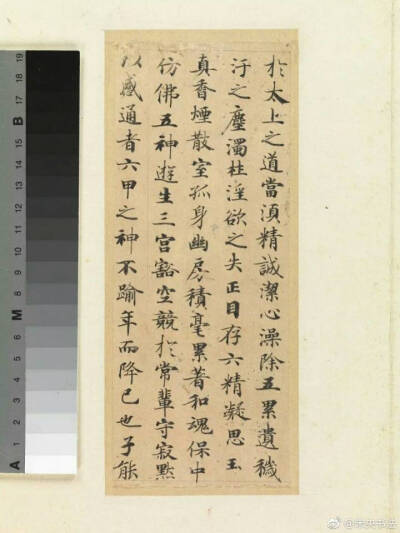 於太上之道當湏精誠潔心澡除五累遺穢
汙之塵濁杜淫欲之失正目存六精凝思玉
真香煙散室孤身幽房積毫累著和魂保中
仿佛五神遊生三宮豁空競於常輩守寂默
以感通者六甲之神不踰年而降已也子能
A 1 2 3 4 5 6 7 M 8 9 10 11 12 13 14 15 B 17 18 19